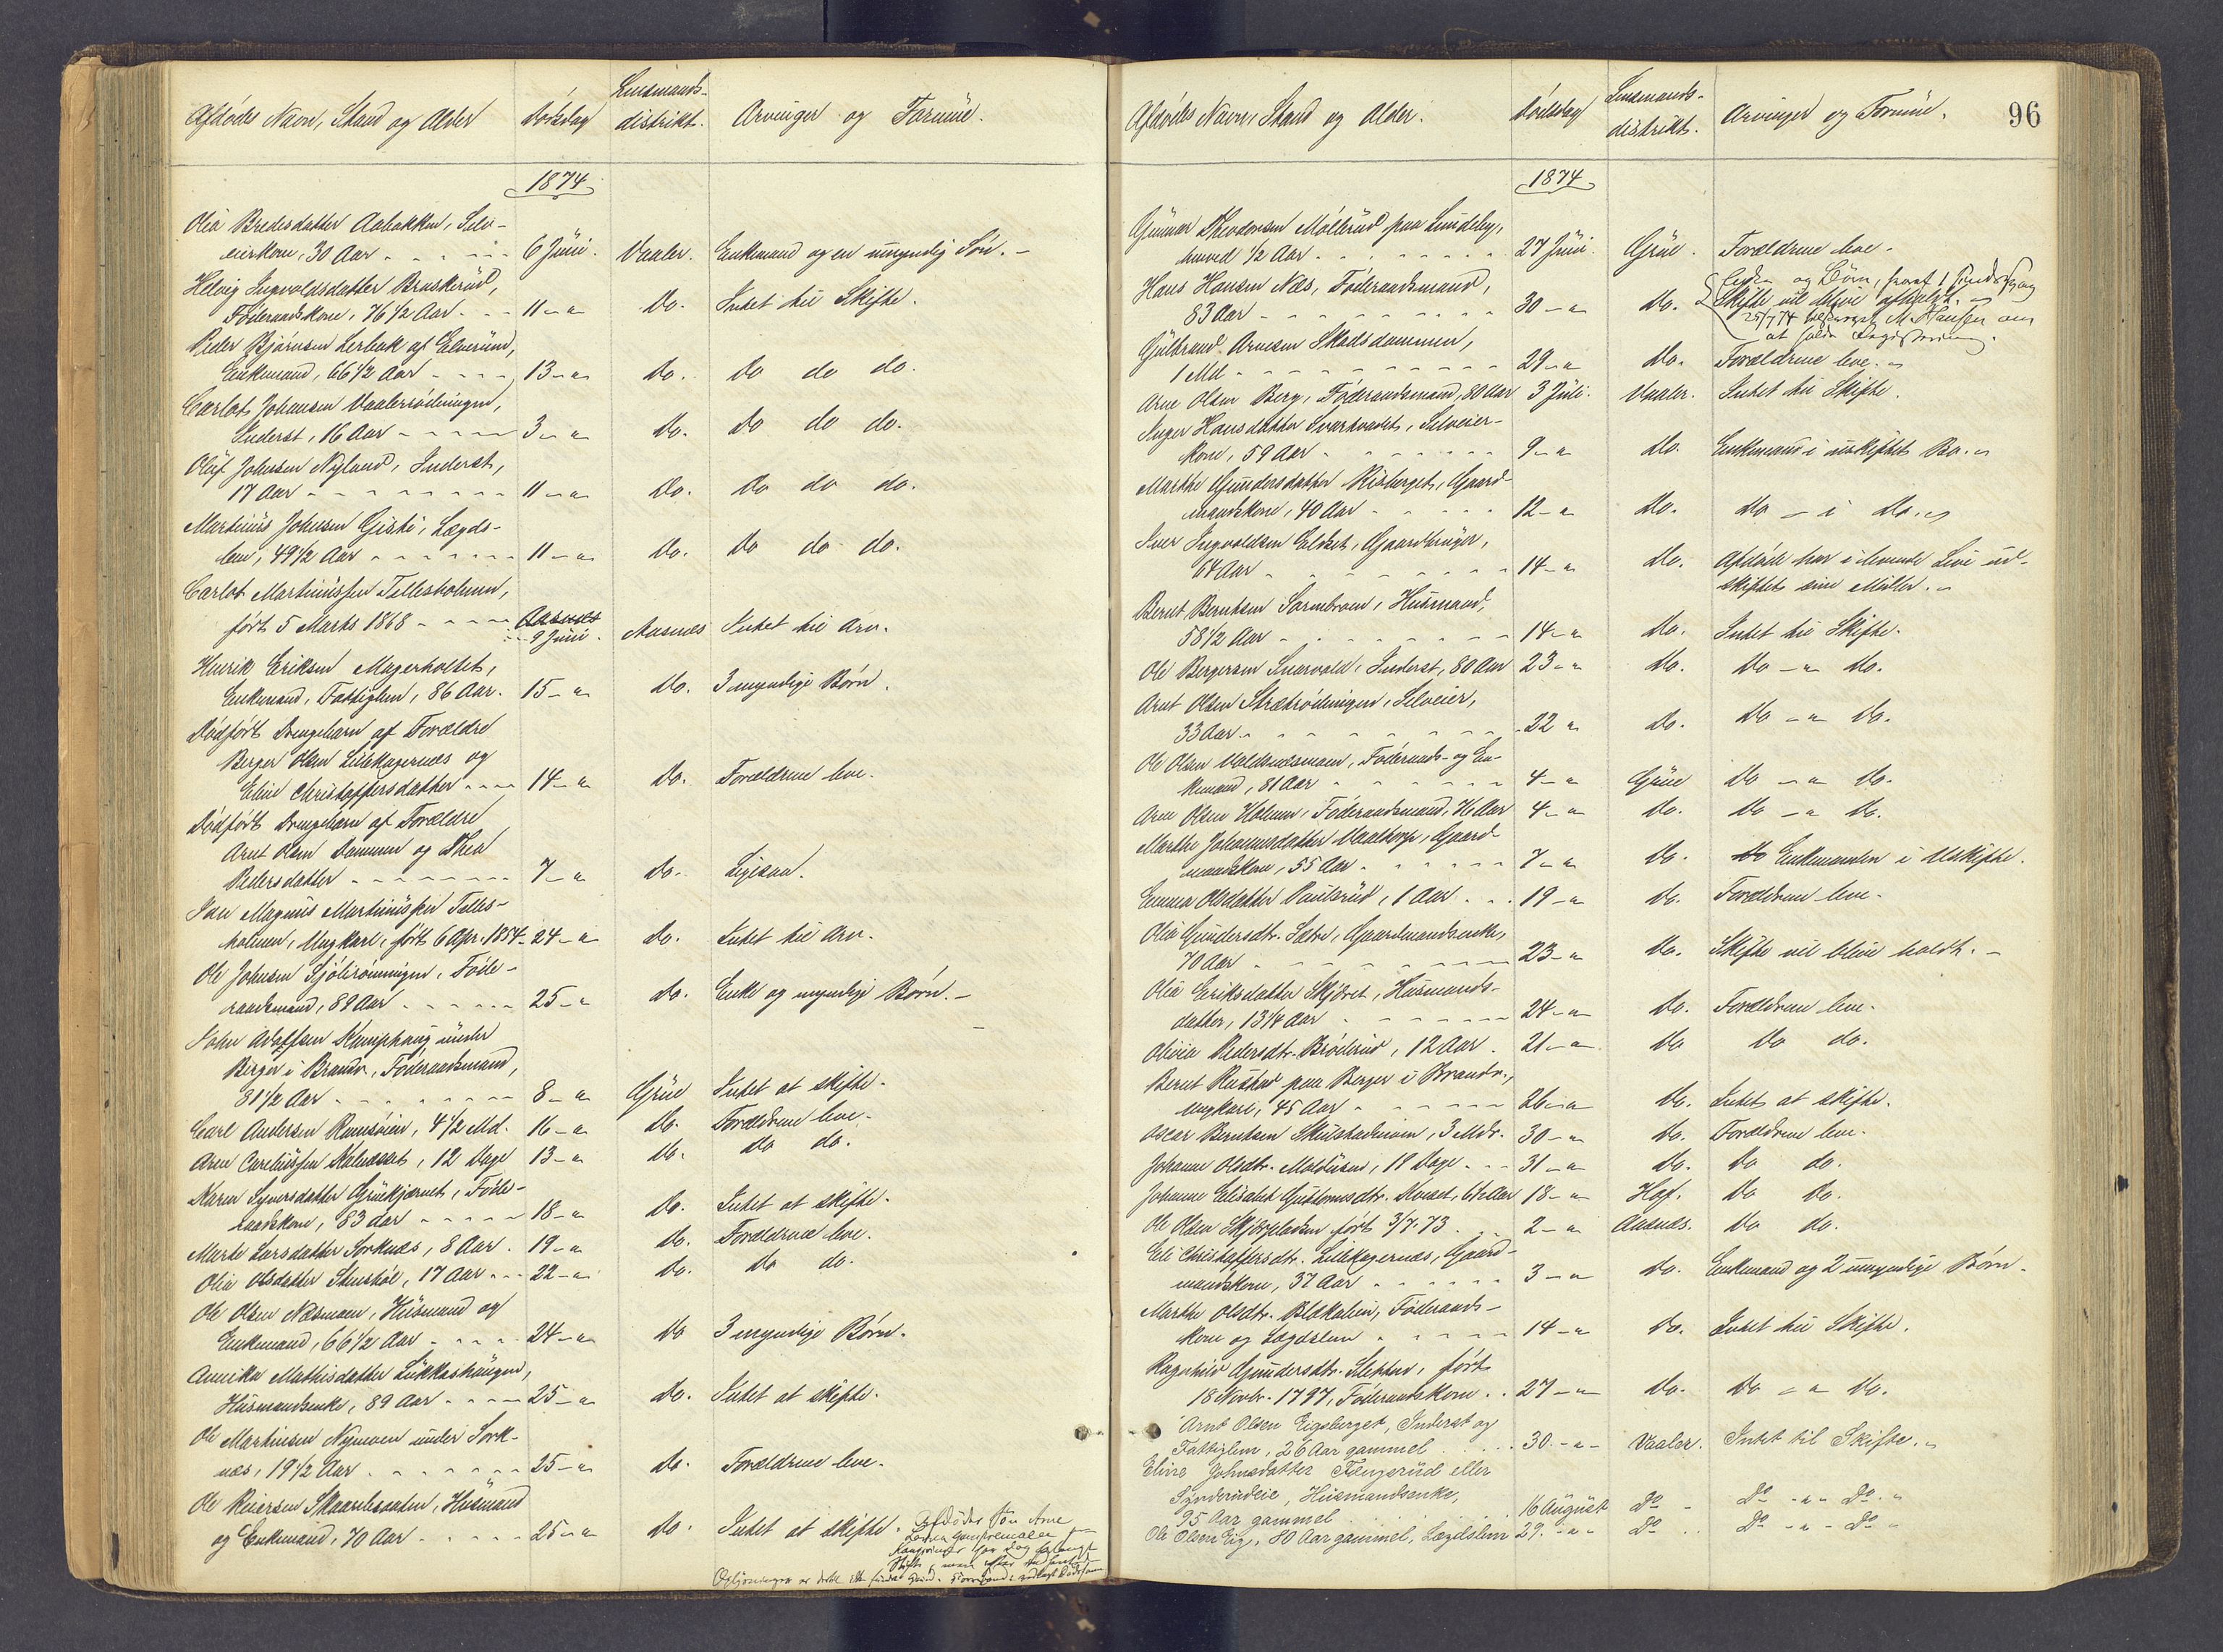 Afdødes Navn, Stand og Alder
Dødsdag
Lensmands-
distrikt.
Arvinger og Formue.
1874
Olia Bredesdatter Aabakken, Selv-
eierkone, 30 Aar - - - 6 Juni. Vaaler. Enkemand og en umyndig Søn. -
Helvig Ingvoldsdatter Braskerud,
Føderaadskone, 76 1/2 Aar - - 11 - " - Do. Intet til Skifte.
Peder Bjørnsen Lerbak af Elverum,
Enkemand, 66 1/2 Aar - - - 13 - " - Do. Do do do.
Carlot Johansen Vaalerrødningen,
Inderst, 16 Aar - - - 3 - " - Do. Do do do.
Oluf Johnsen Nyland, Inderst,
17 Aar - - - 11 - " - Do. Do do do.
Martinus Johnsen Gjsti, Lægds-
lem, 49 1/2 Aar - - - 11 - " - Do. Do do do.
Carlot Martinussen Tellesholmen,
født 5 Marts 1868 - - - Aasnes
9 Juni. Aasnes Intet til Arv.
Henrik Eriksen Magerholtet,
Enkemand, Fattiglem, 86 Aar. 15 - " Do. 3 myndige Børn.
Dødfødt Drengebarn af Forældre
Berger Olsen Lillekagernæs og
Eline Christoffersdatter - - - 14 - " Do. Forældrene leve.
Dødfødt Drengebarn af Forældre
Arnt Olsen Dammen og Thea
Pedersdatter - - - 7 - " Do. Ligesaa.
Magnus Martinussen Telles-
holmen, Ungkarl, født 6 Apr. 1854 - 24 - " Do. Intet til Arv.
Ole Johnsen Sjølirønningen, Føde-
raadsmand, 89 Aar - - - 25 - " do. Enke og myndige Børn. -
John Adolfsen Kamphaug under
Berger i Brandv., Føderaadsmand,
81 1/2 Aar - - - 8 - " Grue Intet at skifte.
Carl Andersen Ramsøien, 4 1/2 Md. 16 - " Do. Forældrene leve.
Arne Carelinssen Kalnæset, 12 Dage 13 - " Do. Do do.
Karen Syversdatter Gruekjernet, Føde-
raadskone, 83 Aar - - - 18 - " Do. Intet at skifte.
Marte Larsdatter Sorknæs, 8 Aar. 19 - " Do. Forældrene leve.
Olia Olsdatter Stenshol, 17 Aar - - 22 - " Do. Do do.
Ole Olsen Næsmoen, Husmand og
Enkemand, 66 1/2 Aar - - - 24 - " Do 3 myndige Børn.
Annika Mathisdatter Lukkashaugen,
Husmandsenke, 89 Aar - - - 25 - " Do. Intet at skifte.
Ole Martinsen Nymoen under Sork-
næs, 19 1/2 Aar - - - 25 - " Do. Forældrene leve.
Ole Reiersen Skaarelsaaten, Husmand
og Enkemand, 70 Aar - - - 25 - " Do. Intet at skifte. Afdødes Søn Arne
har dog forlangt
Skifte, men efter
Oplysninger er dertil ikke fundet Grund.
Afdødes Navn, Stand og Alder.
Dødsdag
Lensmands-
distrikt.
Arvinger og Formue.
96
1874
Gunnar Theodorsen Møllerud paa Lundeby,
henved 1/2 Aar - - - 27 Juni. Grue. Forældrene leve.
Hans Hansen Næs, Føderaadsmand,
83 Aar - - - 30 - " Do. og Børn,
Skifte vil blive afholdt. -
25/7 74 M. Hansen om
at
Gulbrand Arnesen Skadsdammen,
1 Md - - - 29 - " Do. Forældrene leve. -
Arne Olsen Berg, Føderaadsmand, 80 Aar 3 Juli. Vaaler. Intet til Skifte.
Inger Hansdatter Svartvadet, Selveier-
kone, 59 Aar - - - 9 - " Do. Enkemand i uskiftet Bo. -
Marthe Gundersdatter Risberget, Gaard-
mandskone, 40 Aar - - - 12 - " Do. Do - i Do. -
Iver Ingvoldsen Eldset, Gaardbruger,
64 Aar - - - 14 - " Do. Afdøde har i levende Live ud-
skiftet sine Midler. -
Bernt Berntsen Sormbroen, Husmand,
58 1/2 Aar - - - 14 - " Do. Intet til Skifte.
Ole Bergersen Snarvold, Inderst, 80 Aar 23 - " Do. Do - " Do.
Arnt Olsen Strætrødningen, Selveier,
33 Aar - - - 22 " Do. Do - " Do.
Ole Olsen Voldsnæsmoen, Føderaads- og En-
kemand, 81 Aar - - - 4 - " Grue Do - " Do.
Arne Olsen Holmen, Føderaadsmand, 76 Aar 4 - " Do. Do - " Do.
Marthe Johannesdatter Vaaltorp, Gaard-
mandskone, 55 Aar - - - 7 - " Do. Do Enkemanden i Uskifte.
Emma Olsdatter Paulsrud, 1 Aar - - 19 - " Do. Forældrene leve.
Olia Gundersdtr. Sætre, Gaardmandsenke,
70 Aar - - - 23 - " Do. Skifte vil blive holdt. -
Olia Eriksdatter Skjæret, Husmands-
datter, 13 1/4 Aar - - - 24 - " Do. Forældrene leve.
Olivia Pedersdtr. Brøderud, 12 Aar. 21 - " Do Do do.
Bernt Rustad paa Berger i Brandv.,
Ungkarl, 45 Aar - - - 26 - " Do. Intet at skifte.
Oscar Berntsen Skulstadmoen, 3 Mdr. 30 - " Do. Forældrene leve.
Johanne Olsdtr. Moldusen, 18 Dage - - 31 - " Do. Do do.
Johanne Elisabet Gustavusdtr. Moset, 6 1/2 Aar 18 - " Hof. Do Do.
Ole Olsen Skjærpladsen født 3/7.73 - - 2 - " Aasnes. Do do.
Eli Christoffersdtr. Lillekagernæs, Gaard-
mandskone, 37 Aar - - - 3 - " Do. Enkemand og 2 umyndige Børn.
Marthe Olsdtr. Blakalien, Føderaads-
kone og Lægdslem - - - 14 - " Do. Intet til Skifte.
Ragnhild Gundersdtr. Sletten, født
18 Novbr. 1797, Føderaadskone - - 27 - " Do. Do - " Do.
Arnt Olsen Eigsberget, Inderst og
Fattiglem, 26 Aar gammel - - - 30 - " - Vaaler. Intet til Skifte. -
Eline Johnsdatter Fængerud eller
Synderudeie, Husmandsenke,
95 Aar gammel - - - 16 August Do - Do - " - Do. -
Ole Olsen Eig, 80 Aar gammel, Lægdslem 29. - " - Do - Do - " - Do -